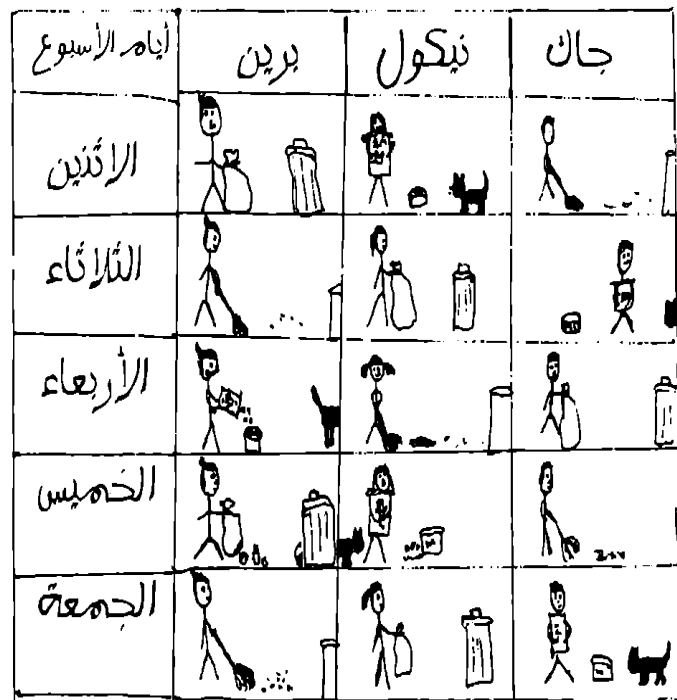 أيام الأسبوع
برين
نيكول
جاك
الاثنين
الثلاثاء
الأربعاء
الخميس
الجمعة